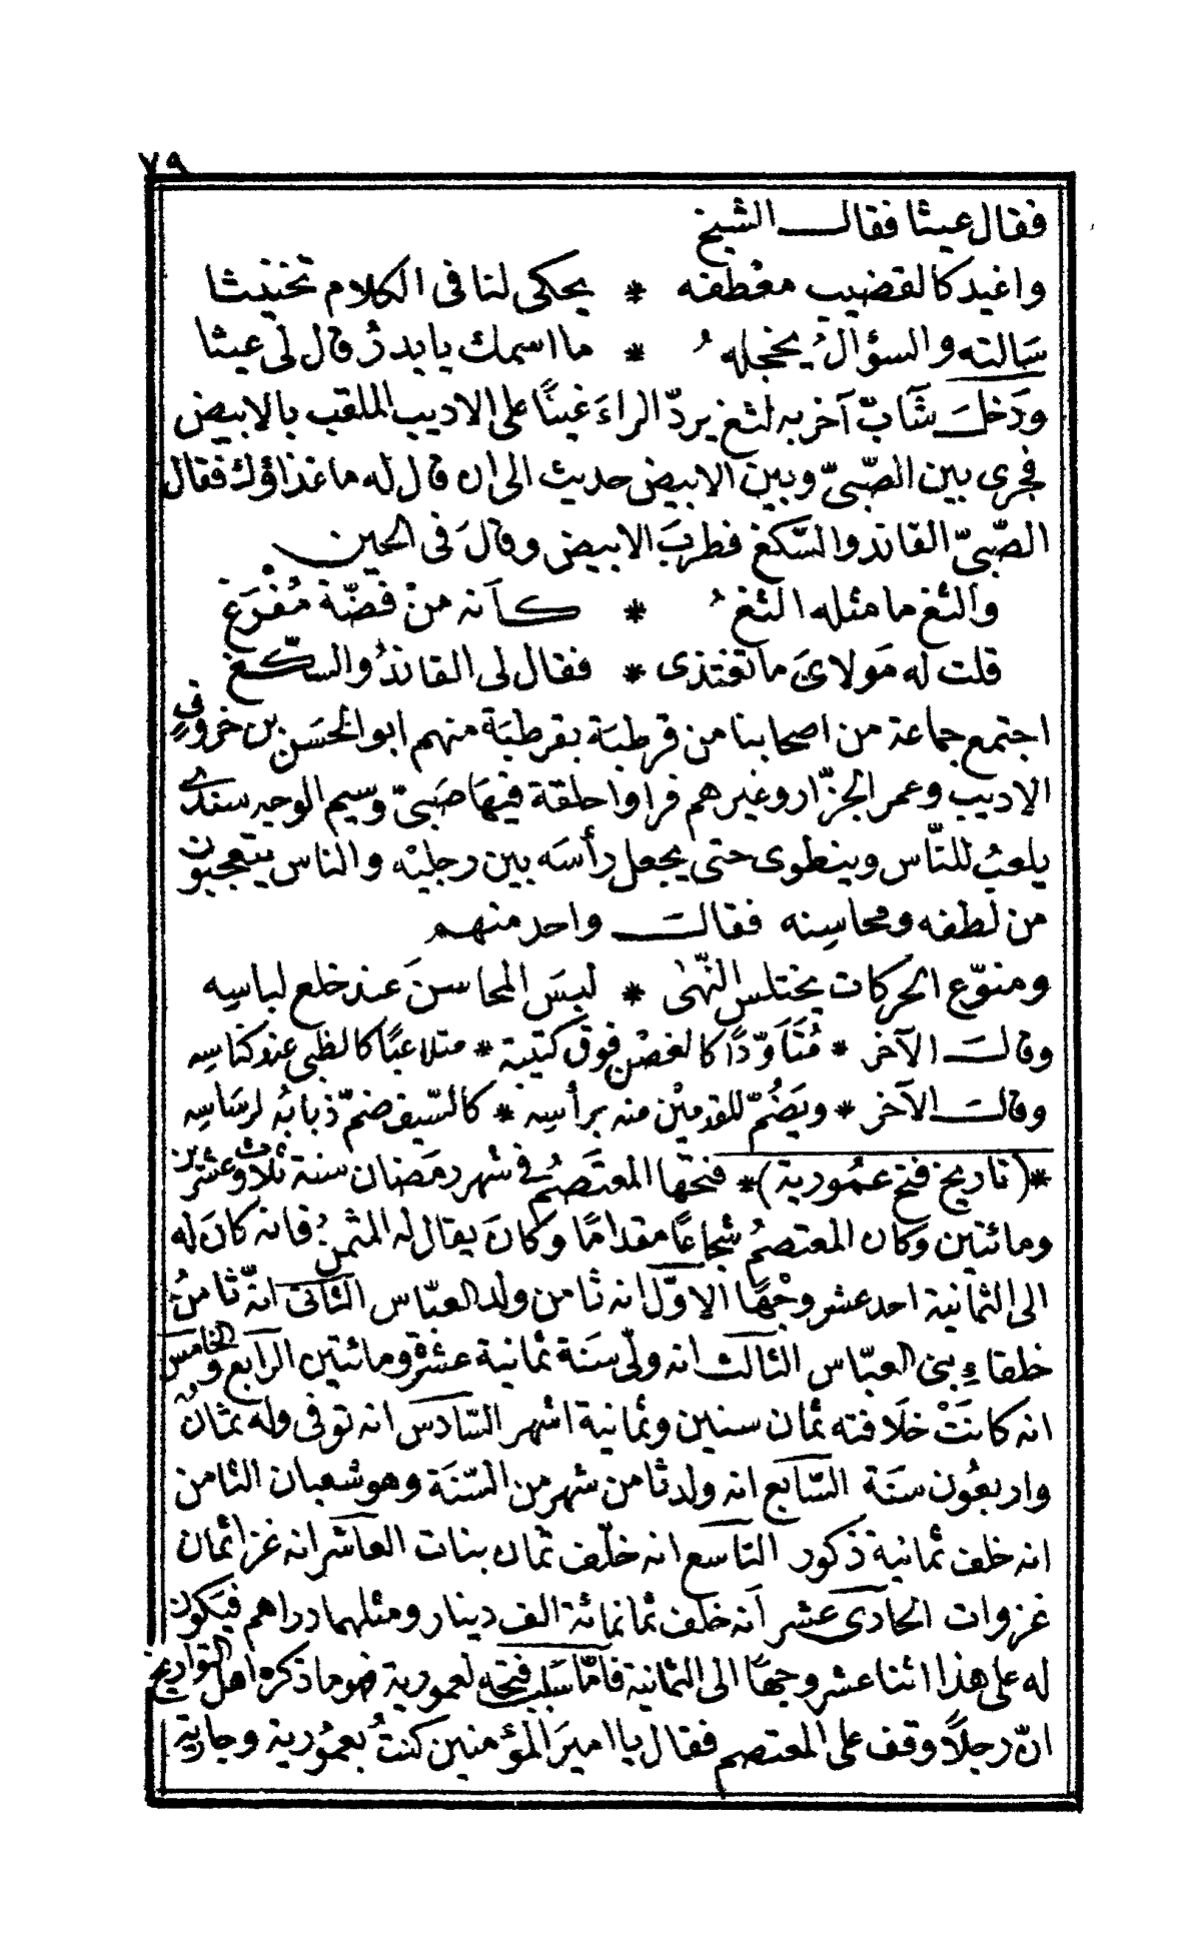 ٧٩
فقال عيثا فقال الشيخ
واغيد كالقضيب معطفه * يحكى لنا فى الكلام تخنيثا
سَالته والسؤالُ يخجلهُ * ما اسمك يا بدرُ قال لى عيثا
ودَخلَ شَابّ آخر به لثغ يردّ الراءَ غينًا على الاديب الملقب بالابيض
فجرى بين الصّبىّ وبين الابيض حديث الى ان قال له ما غذاؤك فقال
الصّبىّ القانذ والسّكغ فطربَ الابيض وقالَ فى الحين
والثغ ما مثله الثغُ * كأنه منْ فضّة مُفْرَغ
قلت له مَولاىَ ما تغتذى * فقال لى القانذُ والسكّغ
اجتمع جماعة من اصحابنا من قرطبَة بقرطبَة منهم ابو الحَسَن بن خروفٍ فى
الاديب وعمر الجزّار وغيرهم فراوا حلقة فيهَا صَبىّ وسيم الوجه سندى
يلعبُ للنّاس وينطوى حتى يجعل رأسَه بين رجليْه والناس يتعجبون
من لطفه ومحاسِنه فقالَ واحد منهم
ومنوّع الحركات يختلس النّهٰى * لبسَ المحاسنَ عند خلع لباسِه
وقالَ الآخر * مُتَأوّدًا كالغصْن فوق كتيبة * متلاعبًا كالظبى عند كناسِه
وقالَ الآخر * ويَضُمّ للقدميْن منه برأسِه * كالسّيف ضمّ ذبابُه لرئاسِه
*(تاريخ فتح عمُورية)* فتحها المعتَصمُ فى شهر رمَضان سنة ثلاث وعشرين
ومائتين وكان المعتصمُ شجاعًا مقدامًا وكانَ يقال له المثمنُ فانه كانَ له
الى الثمانية احد عشر وجْهًا الاوّل انه ثامن ولد العبّاس الثانى انّه ثامنُ
خلفاءِ بنى العبّاس الثالث انه ولّى سَنَة ثمانية عشرة ومائتين الرابع والخامس
انه كانَتْ خلَافته ثمان سنين وثمانية اشهر السّادس انه توفى وله ثمان
واربعُون سنَة السّابع انه ولد ثامن شهر من السّنَة وهو شعبان الثامن
انه خلف ثمانية ذكور التاسع انه خلّف ثمان بنات العاشر انه غزا ثمان
غزوات الحادى عشر أنه خلف ثمانمائة الف دينار ومثلهما دراهم فيَكون
له على هذا اثنا عشر وجهًا الى الثمانية فامّا سَبَب فتحه لعمورية فهو ما ذكره اهل التواريخ
انّ رجلاً وقف على المعتصم فقال يا اميرَ المؤمنين كنتُ بعمُورية وجارية